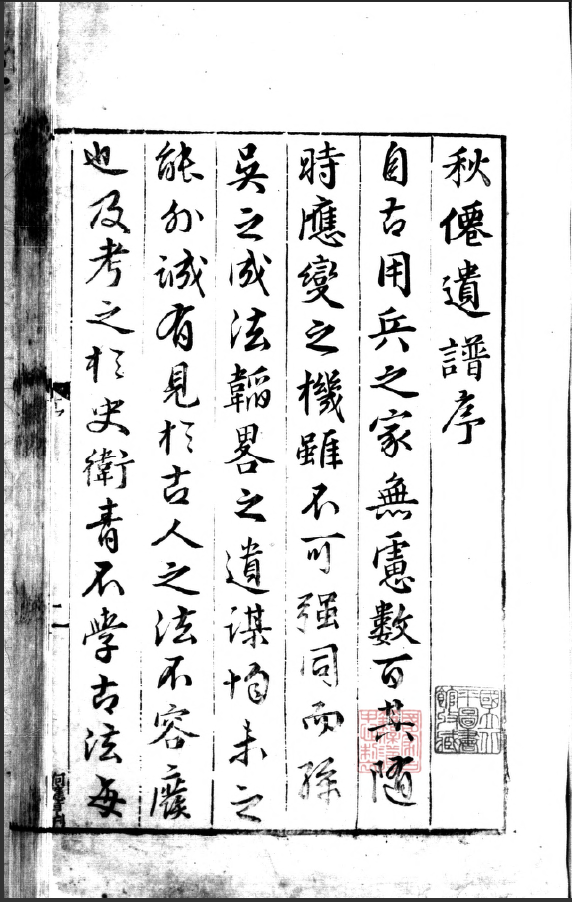 秋僊遺譜序
自古用兵之家無慮數百其隨
時應變之機雖不可强同而孫
吳之成法韜畧之遺謀未之
能外誠有見於古人之法不容廢
也及考之於史衛青不學古法每
國立北平圖書館收藏